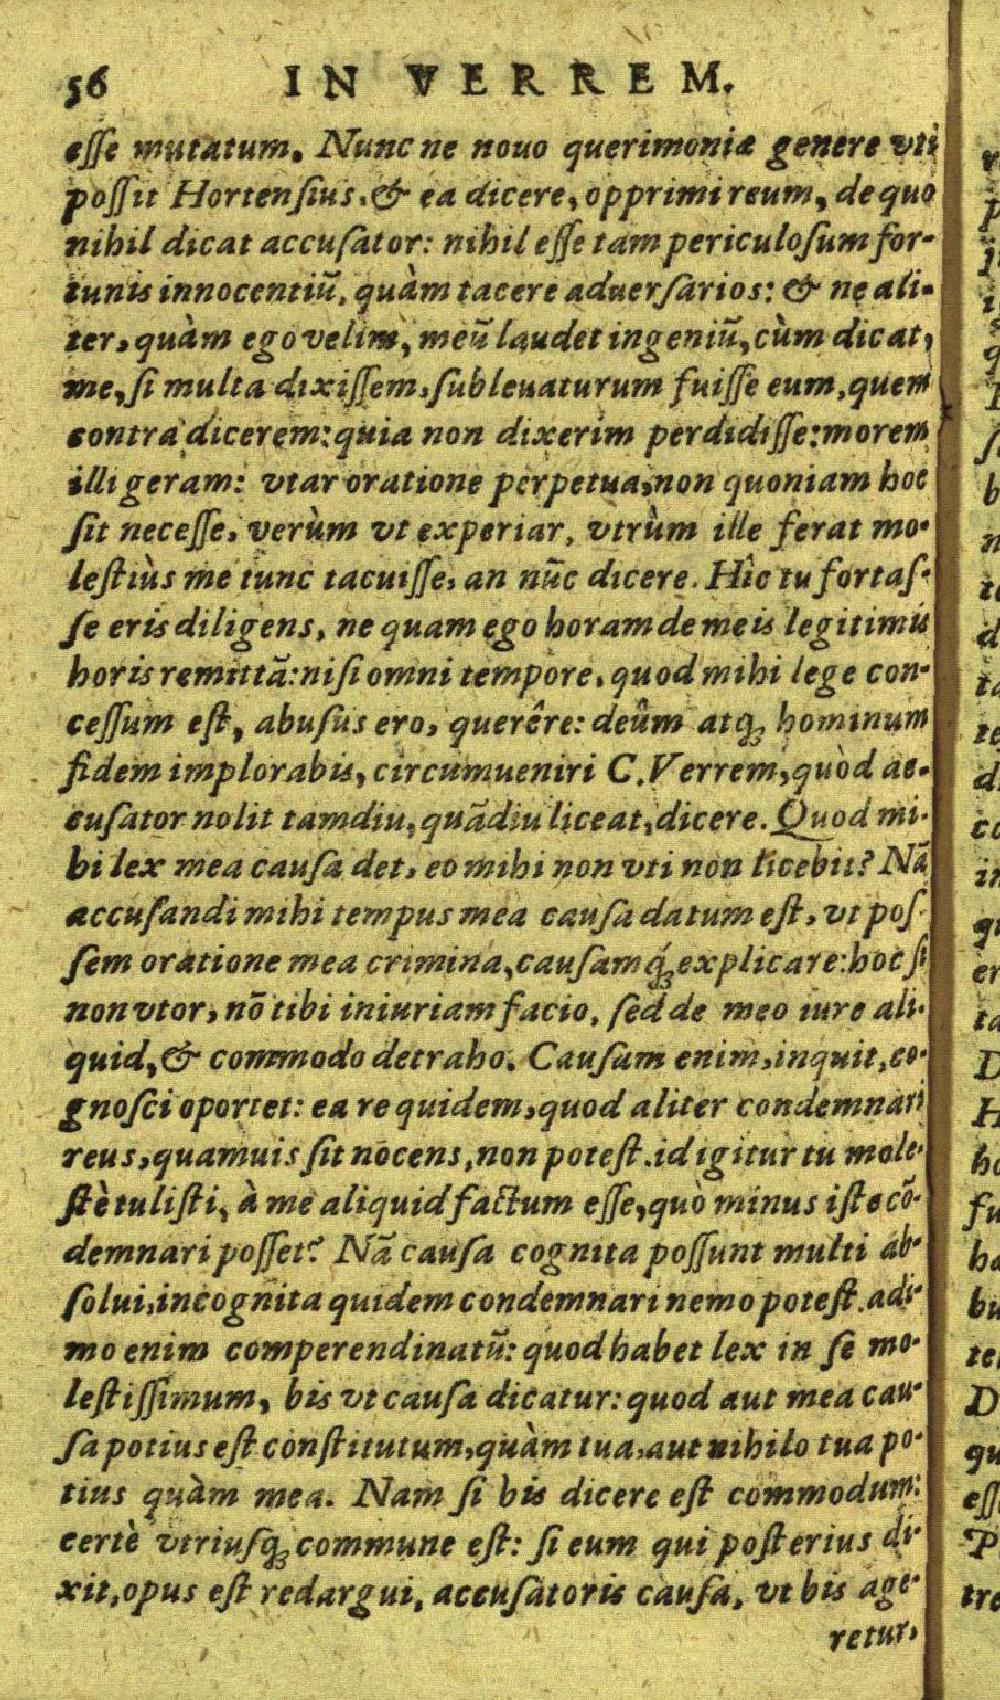 56 IN VERREM.
esse mutatum. Nunc ne nouo querimoniæ genere vti
possit Hortensius, & ea dicere, opprimi reum, de quo
nihil dicat accusator: nihil esse tam periculosum for-
tunis innocentiũ, quàm tacere aduersarios: & ne ali-
ter, quàm ego velim, meũ laudet ingeniũ, cùm dicat,
me, si multa dixissem, subleuaturum fuisse eum, quem
contrà dicerem: quia non dixerim perdidisse: morem
illi geram: vtar oratione perpetua, non quoniam hoc
sit necesse, verùm vt experiar, vtrùm ille ferat mo-
lestiùs me tunc tacuisse, an nũc dicere. Hîc tu fortas-
se eris diligens, ne quam ego horam de meis legitimis
horis remittã: nisi omni tempore, quod mihi lege con-
cessum est, abusus ero, querêre: deûm atq; hominum
fidem implorabis, circumueniri C. Verrem, quòd ac-
cusator nolit tamdiu, quãdiu liceat, dicere. Quod mi-
hi lex mea causa det, eo mihi non vti non licebit? Nã
accusandi mihi tempus mea causa datum est, vt pos-
sem oratione mea crimina, causamq́; explicare: hoc si
non vtor, nõ tibi iniuriam facio, sed de meo iure ali-
quid, & commodo detraho. Causam enim, inquit, co-
gnosci oportet: ea re quidem, quod aliter condemnari
reus, quamuis sit nocens, non potest. id igitur tu mole-
stè tulisti, à me aliquid factum esse, quò minus iste cõ-
demnari posset? Nã causa cognita possunt multi ab-
solui, incognita quidem condemnari nemo potest. adi-
mo enim comperendinatũ: quod habet lex in se mo-
lestissimum, bis vt causa dicatur: quod aut mea cau-
sa potius est constitutum, quàm tua, aut nihilo tua po-
tius quàm mea. Nam si bis dicere est commodum:
certè vtriusq; commune est: si eum qui posterius di-
xit, opus est redargui, accusatoris causa, vt bis age-
retur,